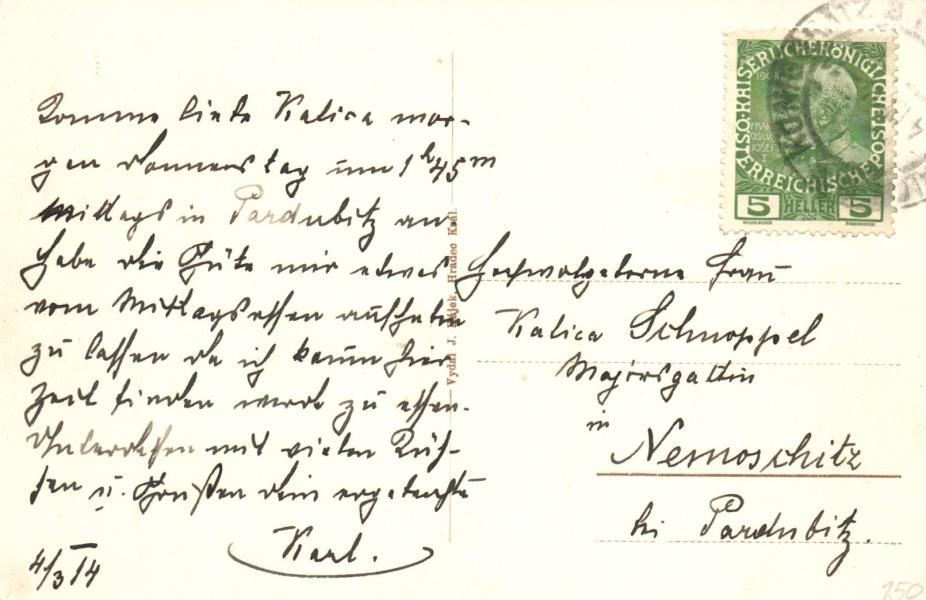 Komme liebe Kalica mor-
gen Donnerstag um 1 h 45 m
Mittags in Pardubitz an
habe die Güte mir etwas
vom Mittagessen aufheben
zu lassen da ich kaum hier
Zeit finden werde zu essen.
Unterdessen mit vielen Küs-
sen u. Grüßen dein ergebenster
Karl.
4/3 14
Vydal J. Hájek, Hradec Král.
Hochwolgeborne Frau
Kalica Schnoppel
Majorsgattin
in
Nemoschitz
bei Pardubitz.
KAISERLICHE KÖNIGLICHE ÖSTERREICHISCHE POST
1908
FRANZ
JOSEF
I
5 HELLER 5
150